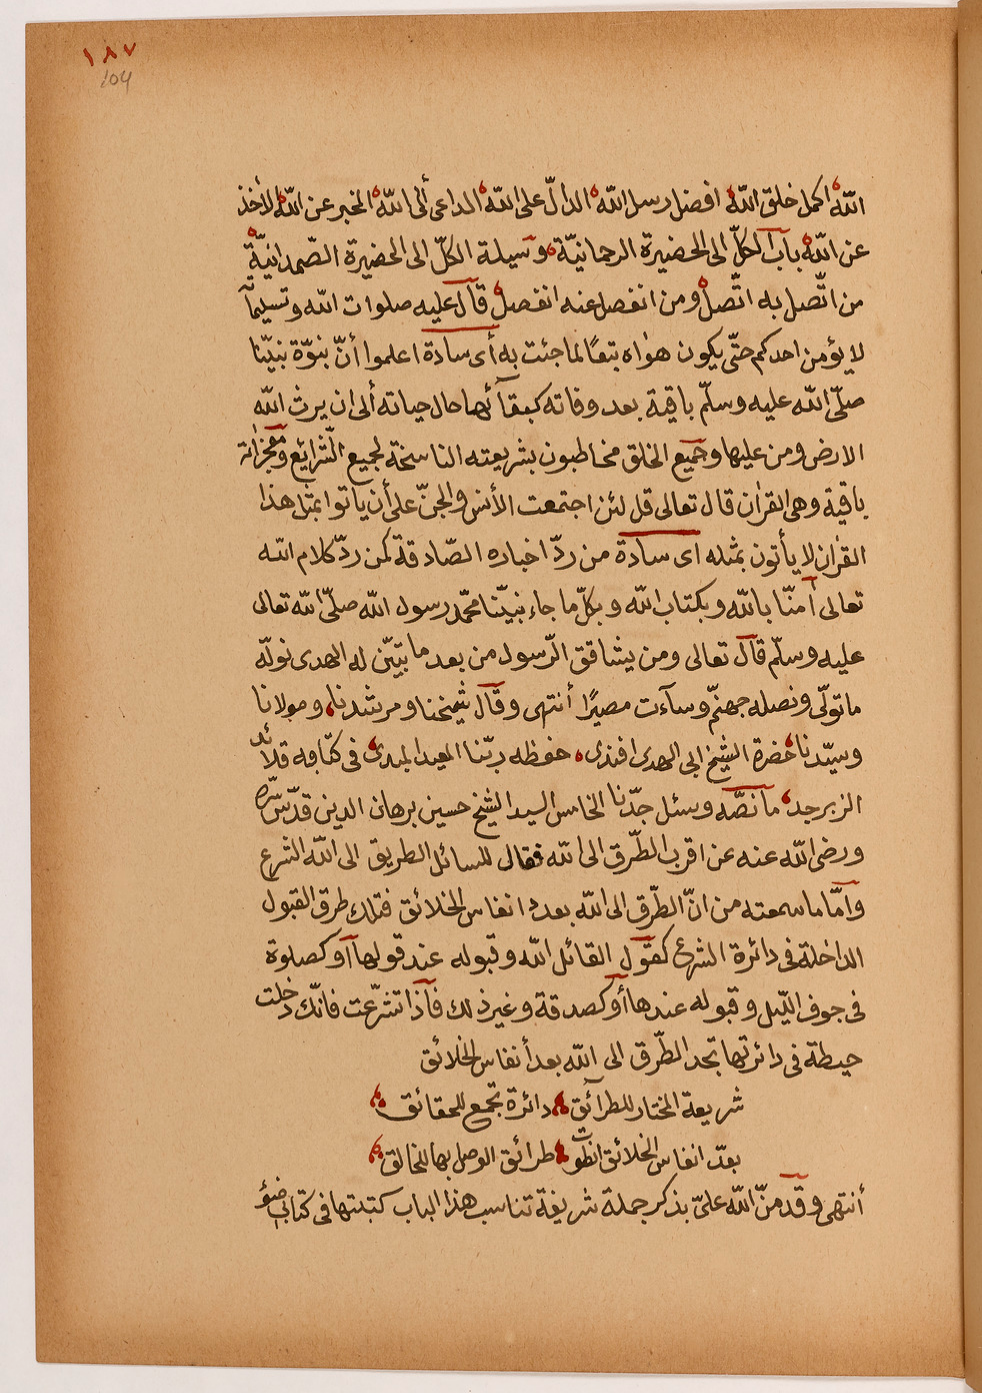 ١٨٧
104
الله اكمل خلق الله افضل رسل الله الدالّ على الله الداعى ألى الله المخبر عن الله الأخذ
عن الله باب الكلّ الى الحضيرة الرحمانيّة وسيلة الكلّ الى الحضيرة الصّمدانيّة
من اتّصل به اتّصل ومن انفصل عنه انفصل قال عليه صلوات الله وتسليمآ
لا يؤمن احدكم حتّى يكون هواه تبعًا لما جئت به أى سادة اعلموا أنّ نبوّة نبيّنا
صلّى الله عليه وسلّم باقية بعد وفاته كبقآئها حال حياته ألى ان يرث الله
الارض ومن عليها وجميع الخلق مخاطبون بشريعته الناسخة لجميع الشّرائع ومعجزاته
باقية وهى القرٰان قال تعالى قل لئن اجتمعت الأنس والجنّ على أن ياتوا بمثل هذا
القرٰان لا يأتون بمثله اى سادة من ردّ اخباره الصّادقة كمن ردّ كلام الله
تعالى آمنّا بالله وبكتاب الله وبكلّ ما جاء نبيّنا محمّد رسول الله صلّى الله تعالى
عليه وسلّم قال تعالى ومن يشاقق الرّسول من بعد ما تبيّن له الهدى نولّه
ما تولّى ونصله جهنّم وسآءت مصيرًا أنتهى وقال شيخنا ومرشدنا ومولانا
وسيّدنا حضرة الشيخ ابى الهدى افندى حفظه ربّنا المعيد المبدى فى كتابه قلائد
الزبرجد ما نصّه وسئل جدّنا الخامس السيد الشيخ حسين برهان الدين قدّس سرّه
ورضى الله عنه عن اقرب الطّرق الى الله فقال للسائل الطريق الى الله الشرع
وامّا ما سمعته من انّ الطّرق الى الله بعدد انفاس الخلائق فتلك طرق القبول
الداخلة فى دائرة الشرع كقول القائل الله وقبوله عند قولها أو كصلوة
فى جوف اللّيل وقبوله عندها أو كصدقة وغير ذلك فاذا تشرّعت فانّك دخلت
حيطة فى دائرتها تجد الطّرق الى الله بعد أنفاس الخلائق
شريعة المختار للطرآئق دائرة تجمع للحقائق
بعدّ انفاس الخلائق انطوت طرائق الوصل بها للخالق
أنتهى وقد منّ الله علىّ بذكر جملة شريفة تناسب هذا الباب كتبتها فى كتابى ضؤ